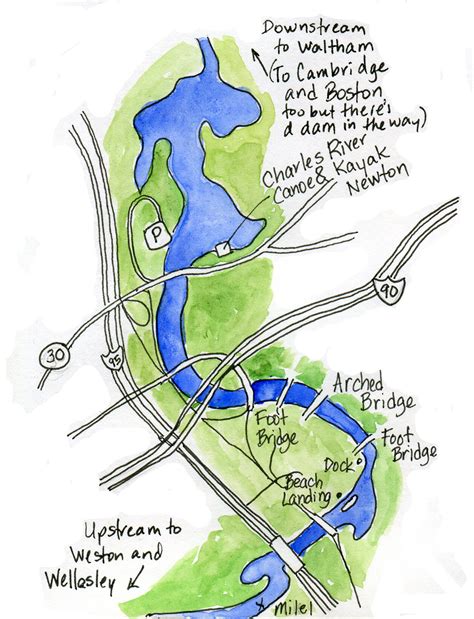 Downstream
to Waltham
(To Cambridge
and Boston
too but there's
a dam in the way)
Charles River
Canoe & Kayak
Newton
P
90
30
95
Arched
Bridge
Foot
Bridge
Foot
Bridge
Dock
Beach
Landing
Upstream to
Weston and
Wellesley
Mile 1